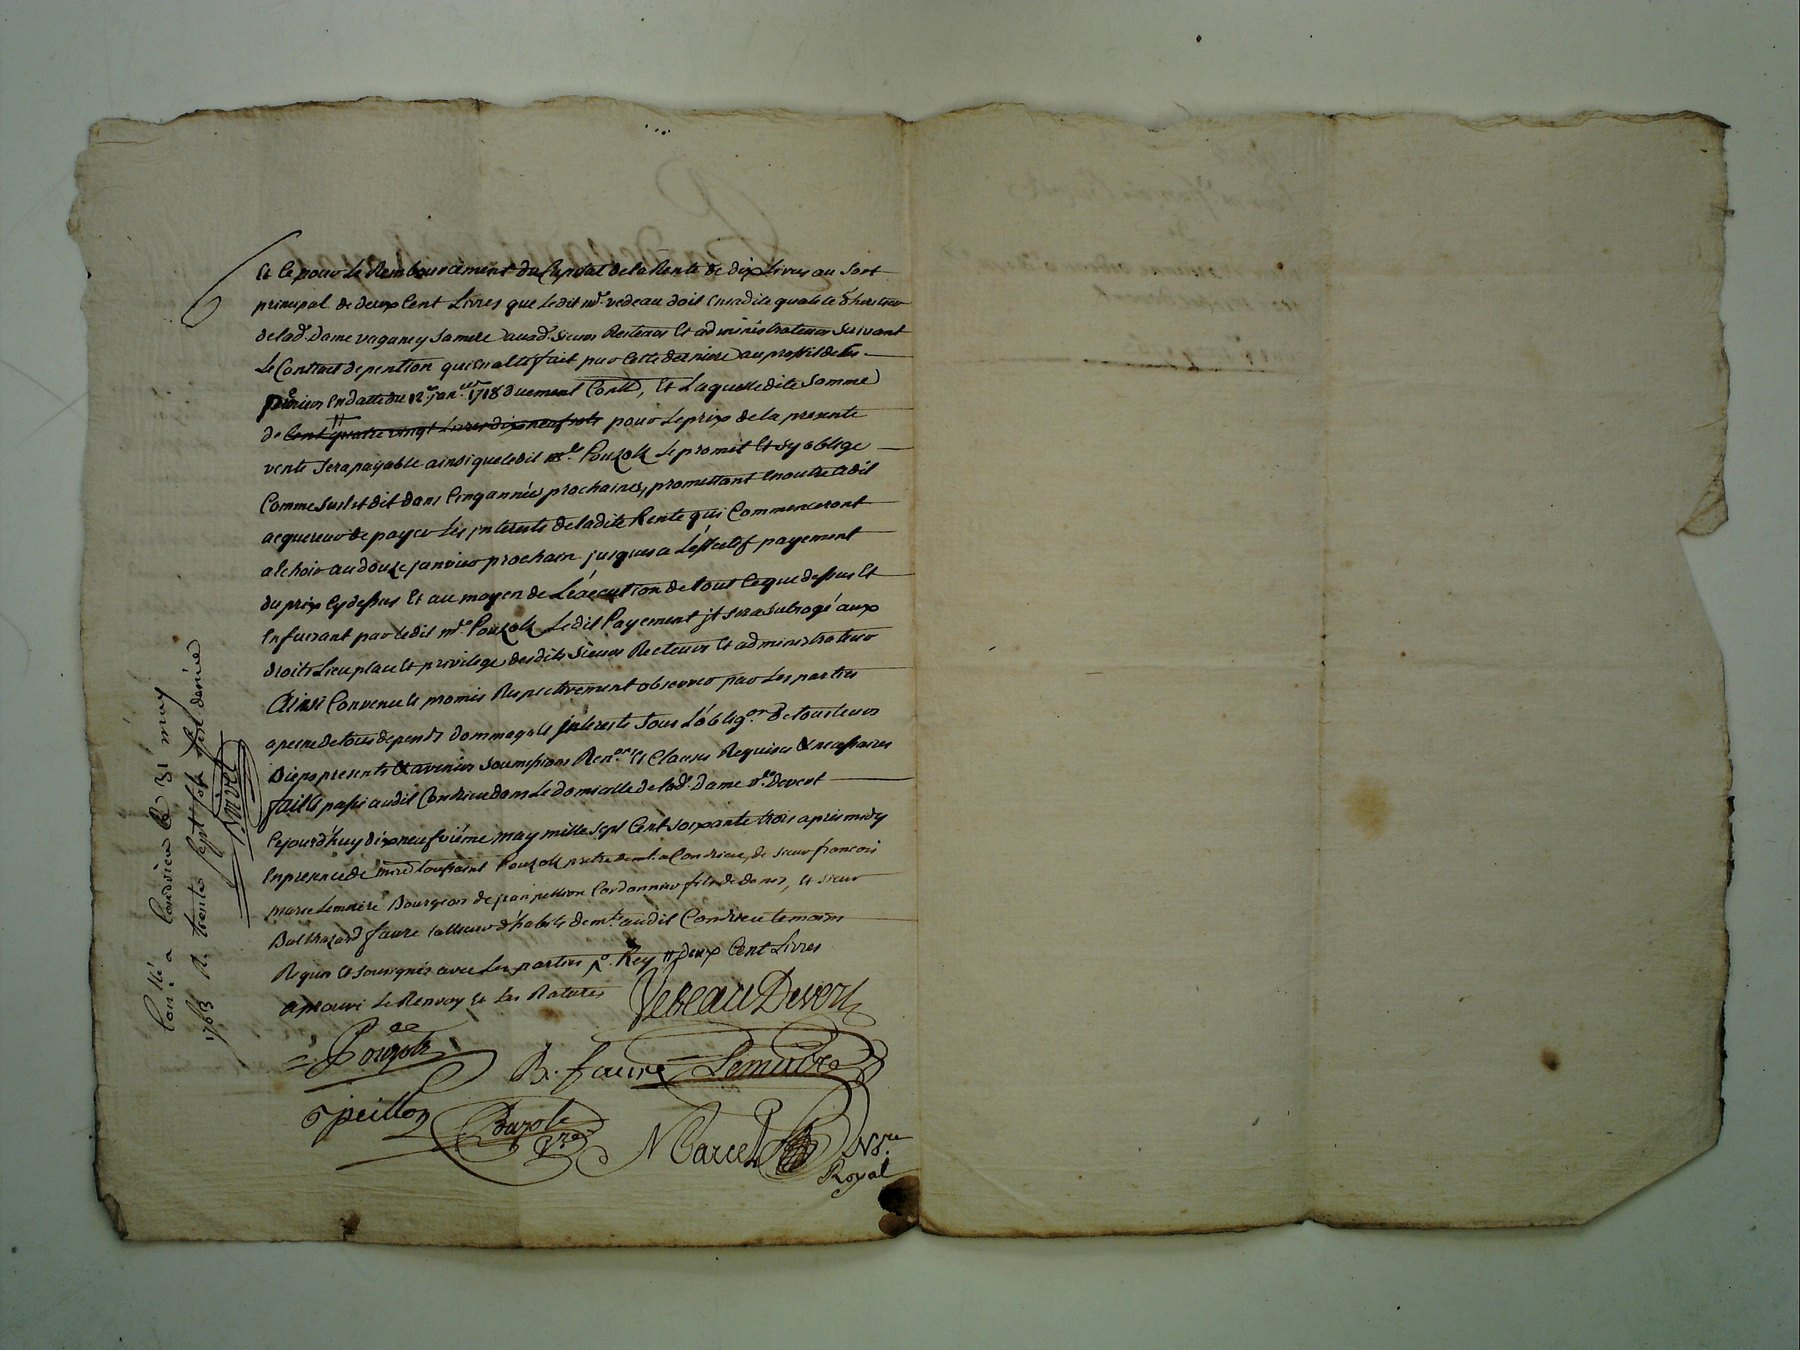 Et Ce pour Le Remboursement du Capital de la Rente de dix Livres au Sort
principal de deux Cent Livres que Ledit mr. vedeau doit En sadite qualité d'heritier
de lad. Dame vaganey Sa mere auxd. Sieurs Recteurs Et administrateurs Suivant
Le Contract de pention qui En a été fait par Cette derniere au proffit de Ces
En datte du 12e. janer. 1718 duement Conllé, Et Laquelle dite Somme
de Cent quatre vingt Livres dix neuf sols pour Le prix de la presente
vente Sera payable ainsi que Ledit mre. Pouzolz Le promet Et S'y oblige
Comme Sus Est dit dans Cinq années prochaines, promettant En outre Ledit
acquereur de payer Les jnterests de ladite Rente qui Commenceront
a Echoir au douze janvier prochain jusques a L'éffectif payement
du prix Cy dessus Et au moyen de L'éxécution de tout Ce que dessus Et
En faisant par Ledit mre. Pouzolz Ledit Payement jl sera Subrogé aux
droits Lieu place Et privilege desdits Sieurs Recteurs Et administrateurs
Ainsi Convenu Et promis Respectivement observer par Les parties
a peine de tous depends dommages Et jnterests Sous L'obligon. de tous leurs
Biens presents & avenir Soumissions Renon. Et Clauses Requises & necessaires
fait Et passé audit Condrieu dans Le domicille de lad. Dame Devert
Cejourd'huy dix neufvième may mille Sept Cent Soixante trois après midy
En presence de mre toussaint Pouzolz prêtre demt. a Condrieu, de sieur francois
marie Lemaire Bourgeois de jean peillon Cordonnier fils de denis, Et sieur
Balthazard faure tailleur d'habits demts. audit Condrieu temoins
Requis Et soussignés avec Les parties Rey # deux Cent Livres
aprouvé Le Renvoy Et Les Ratures
Vedeau Devert
Pouzolz
B. faure Lemaire
peillon
Pouzolz
Marcel Nre.
Royal
Conllé a Condrieu Le 31 may
1763 R. trente sept sols six denier